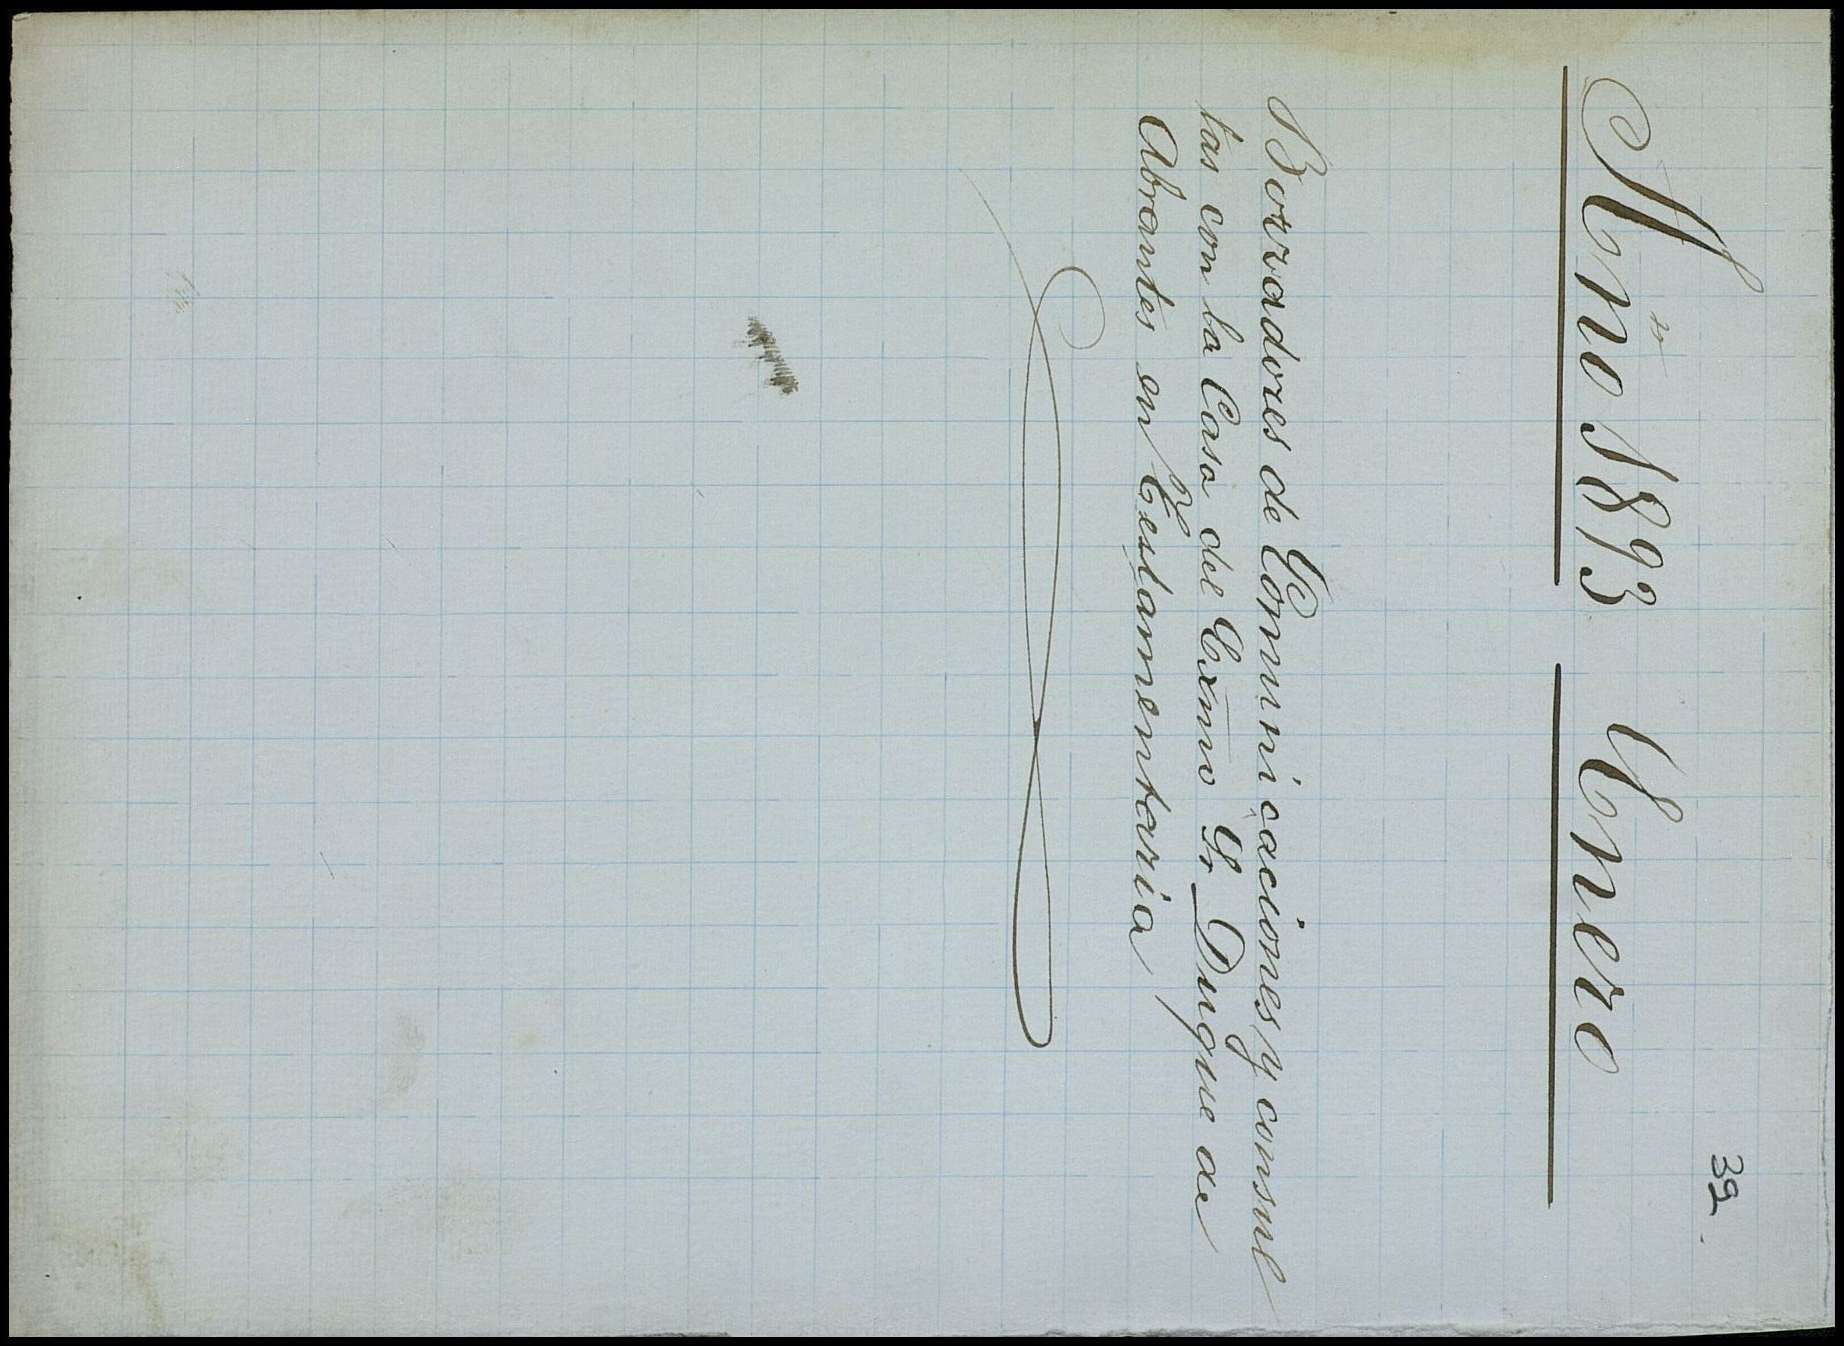 39.
Año 1893 Enero
Borradores de Comunicaciones y consul
tas con la Casa del Exmo Sr Duque de
Abrantes en Testamentaria